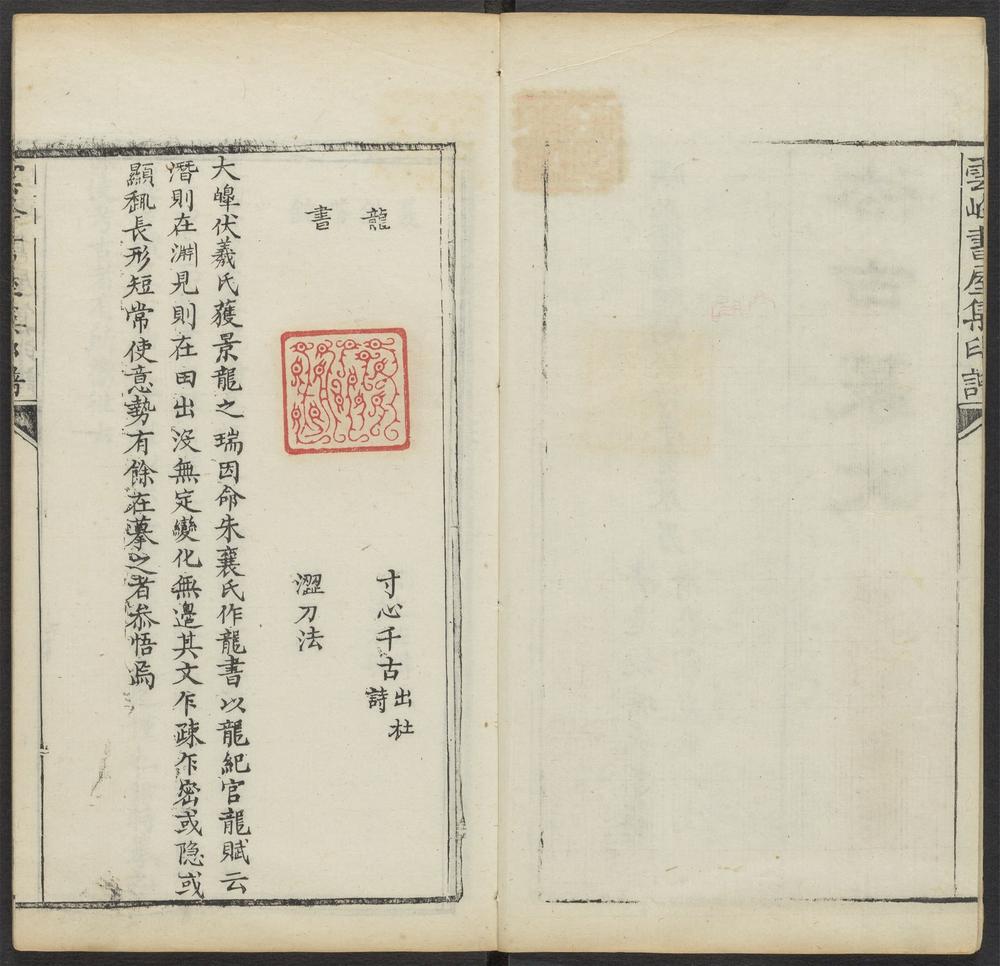 雲峰書屋集印譜
龍書
寸心千古
出杜詩
澀刀法
大皡伏羲氏獲景龍之瑞因命朱襄氏作龍書以龍紀官龍賦云
潛則在淵見則在田出沒無定變化無邊其文乍疎乍密或隐或
顯飜長形短常使意勢有餘在摹之者叅悟焉